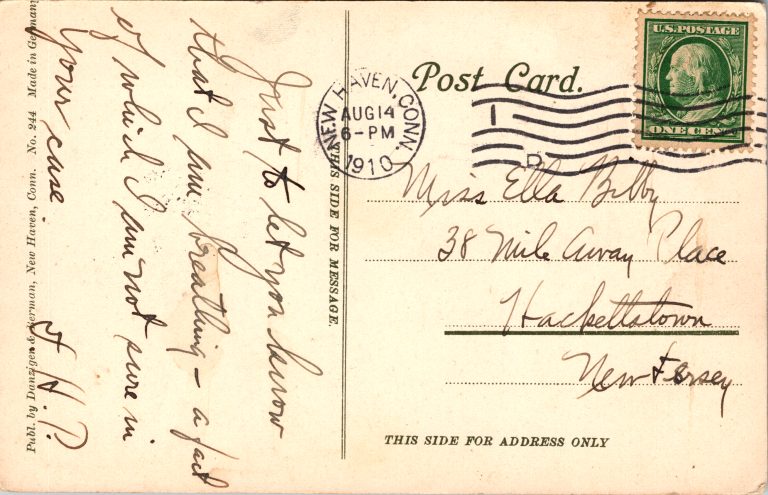 Post Card.
U.S. POSTAGE
ONE CENT
NEW HAVEN, CONN.
AUG 14
6-PM
1910
Just to let you know
that I am breathing - a fact
of which I am not sure in
your case.
J. H. P.
THIS SIDE FOR MESSAGE.
Miss Ella Bilby
38 Mile Away Place
Hackettstown
New Jersey
THIS SIDE FOR ADDRESS ONLY
Publ. by Danziger & Berman, New Haven, Conn. No. 244 Made in Germany